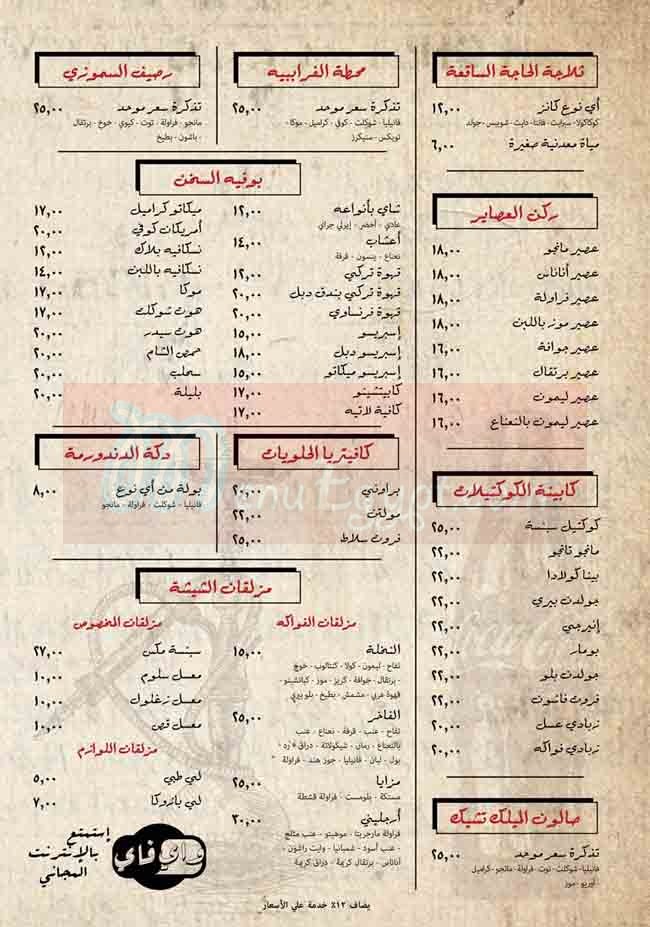 ثلاجة الحاجة الساقعة
أي نوع كانز ١٢,٠٠
كوكاكولا - سبرايت - فانتا - دايت - شويبس - جولد
مياة معدنية صغيرة ٦,٠٠
ركن العصاير
عصير مانجو ١٨,٠٠
عصير أناناس ١٨,٠٠
عصير فراولة ١٨,٠٠
عصير موز باللبن ١٨,٠٠
عصير جوافة ١٦,٠٠
عصير برتقال ١٦,٠٠
عصير ليمون ١٦,٠٠
عصير ليمون بالنعناع ١٦,٠٠
كابينة الكوكتيلات
كوكتيل سبنسة ٢٥,٠٠
مانجو تانجو ٢٢,٠٠
بينا كولادا ٢٢,٠٠
جولدن بيري ٢٢,٠٠
إنيرجي ٢٢,٠٠
بومار ٢٢,٠٠
جولدن بلو ٢٢,٠٠
فروت فاشون ٢٢,٠٠
زبادي عسل ٢٠,٠٠
زبادي فواكه ٢٠,٠٠
صالون الميلك تشيك
تذكرة سعر موحد ٢٥,٠٠
فانيليا - شوكلت - توت - فراولة - مانجو - كراميل
- أوريو - موز
محطة الفرابيه
تذكرة سعر موحد ٢٥,٠٠
فانيليا - شوكلت - كوفي - كراميل - موكا -
تويكس - سنيكرز
رصيف السموزي
تذكرة سعر موحد ٢٥,٠٠
مانجو - فراولة - توت - كيوي - خوخ - برتقال
- باشون - بطيخ
بوفيه السخن
شاي بأنواعه ١٢,٠٠
عادي - أخضر - إيرلي جراي
أعشاب ١٤,٠٠
نعناع - ينسون - قرفة
قهوة تركي ١٢,٠٠
قهوة تركي بندق دبل ٢٠,٠٠
قهوة فرنساوي ٢٠,٠٠
إسبريسو ١٥,٠٠
إسبريسو دبل ١٨,٠٠
إسبريسو ميكاتو ١٥,٠٠
كابيتشينو ١٧,٠٠
كافية لاتيه ١٧,٠٠
ميكاتو كراميل ١٧,٠٠
أمريكان كوفي ٢٠,٠٠
نسكافيه بلاك ١٢,٠٠
نسكافيه باللبن ١٤,٠٠
موكا ١٧,٠٠
هوت شوكلت ١٧,٠٠
هوت سيدر ٢٠,٠٠
حمص الشام ٢٠,٠٠
سحلب ٢٠,٠٠
بليلة ٢٠,٠٠
كافيتريا الحلويات
براوني ٢٠,٠٠
مولتن ٢٢,٠٠
فروت سلاط ٢٥,٠٠
دكة الدندورمة
بولة من أي نوع ٨,٠٠
فانيليا - شوكلت - فراولة - مانجو
Menu Egypt
مزلقان الشيشة
مزلقان الفواكه
النخلة ١٥,٠٠
تفاح - ليمون - كولا - كنتالوب - خوخ
- برتقال - جوافة - كريز - موز - كباتشينو -
قهوة عربي - مشمش - بطيخ - بلو بيري
الفاخر ٢٥,٠٠
تفاح - عنب - قرفة - نعناع - عنب
بالنعناع - رمان - شيكولاتة - دراق - رد
بول - لبان - فانيليا - جوز هند - فراولة
مزايا ٢٥,٠٠
مستكة - بلومست - فراولة قشطة
أرجليني ٣٠,٠٠
فراولة مارجريتا - موهيتو - عنب مثلج
- عنب أسود - شمبانيا - وايت راشون -
أناناس - برتقال كريمة - دراق كريمة
مزلقان المخصوص
سبنسة مكس ٢٧,٠٠
معسل سلوم ١٠,٠٠
معسل زغلول ١٠,٠٠
معسل قص ١٠,٠٠
مزلقان اللوازم
لي طبي ٥,٠٠
لي بازوكا ٧,٠٠
إستمتع
بالإنترنت
المجاني
واي فاي
يضاف ١٢٪ خدمة علي الأسعار